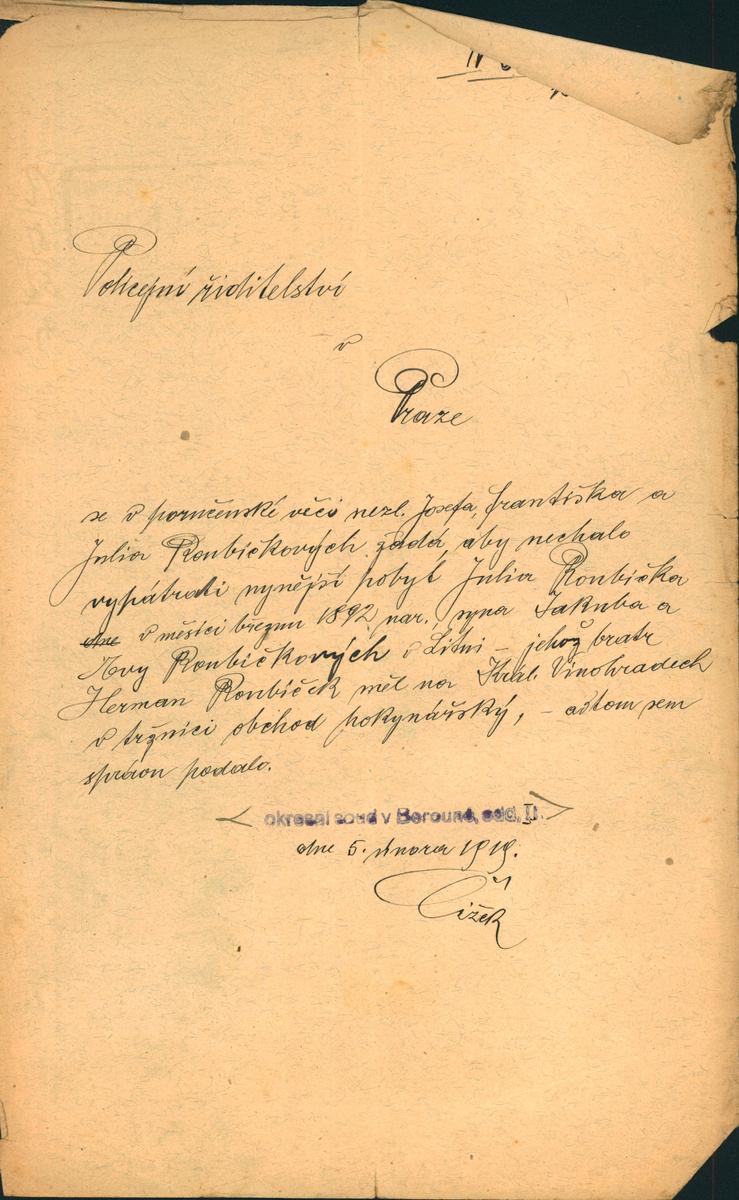 Policejní ředitelství
v
Praze
se v poručenské věci nezl. Josefa, Františka a
Julia Roubíčkových žádá, aby nechalo
vypátrati nynější pobyt Julia Roubíčka
dne v měsíci březnu 1892 nar. syna Jakuba a
Evy Roubíčkových v Litni – jehož bratr
Herman Roubíček měl na Král. Vinohradech
v tržnici obchod hokynářský, – a o tom sem
zprávu podalo.
okresní soud v Berouně, odd. II.
dne 5. února 1919.
Čížek